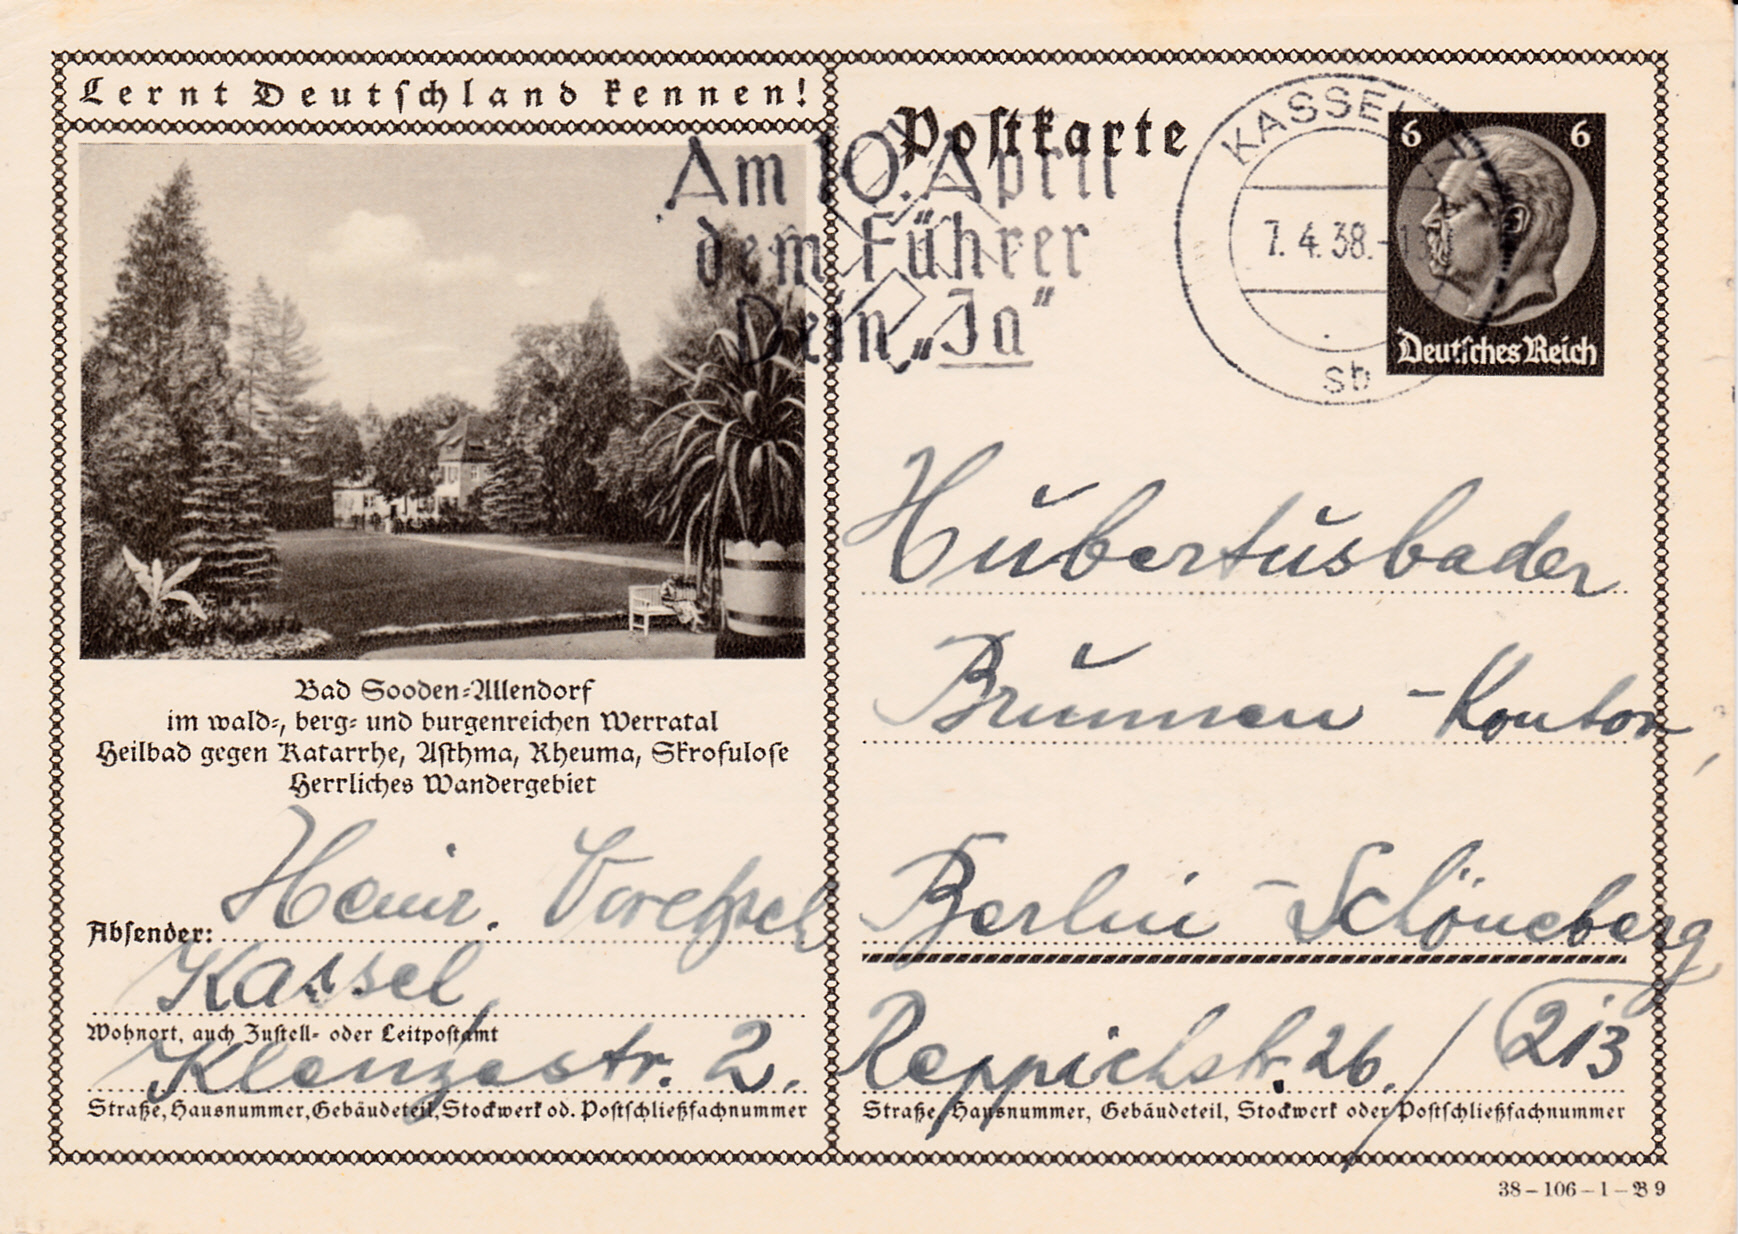 Lernt Deutschland kennen!
Bad Sooden-Allendorf
im wald-, berg- und burgenreichen Werratal
Heilbad gegen Katarrhe, Asthma, Rheuma, Skrofulose
Herrliches Wandergebiet
Absender: Heinr.
Kassel,
Wohnort, auch Zustell- oder Leitpostamt
str. 2.
Straße, Hausnummer, Gebäudeteil, Stockwerk od. Postschließfachnummer
Postkarte
Am 10. April
dem Führer
Dein „Ja“
KASSEL
7. 4. 38.
sb
6 6
Deutsches Reich
Hubertusbader
Brunnen-Kontor,
Berlin-Schöneberg
str. 26. / 213
Straße, Hausnummer, Gebäudeteil, Stockwerk oder Postschließfachnummer
38-106-1-B 9